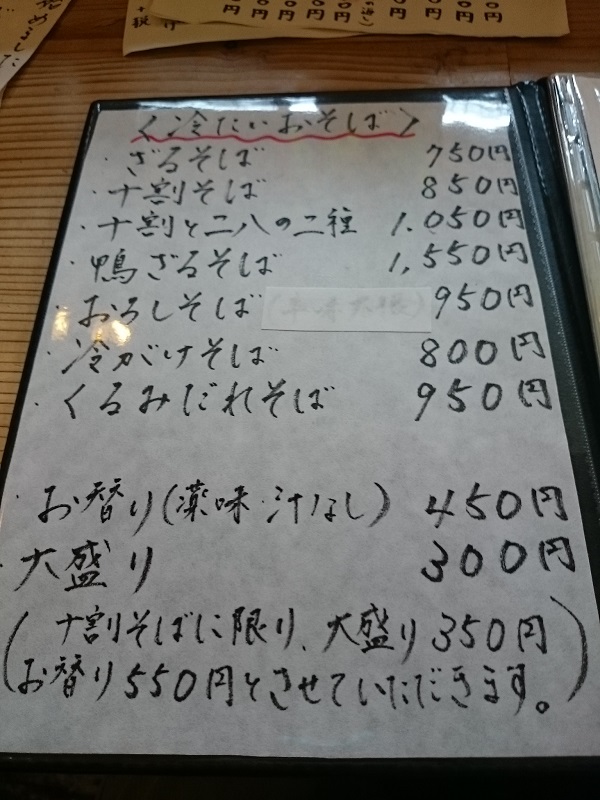 円 円 円 円 円 円 円 円 円
+税
始めました
〈冷たいおそば〉
・ざるそば 750円
・十割そば 850円
・十割と二八の二種 1.050円
・鴨ざるそば 1,550円
・おろしそば (辛味大根) 950円
・冷がけそば 800円
・くるみだれそば 950円
・お替り(薬味・汁なし) 450円
・大盛り 300円
(十割そばに限り、大盛り350円
お替り550円とさせていただきます。)